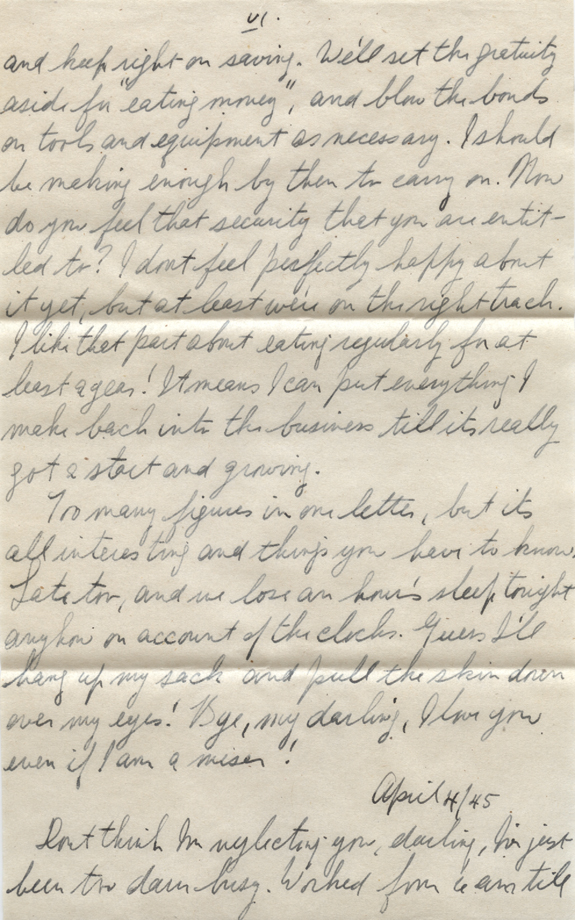 VI.
and keep right on saving. We'll set the gratuity
aside for "eating money", and blow the bonds
on tools and equipment as necessary. I should
be making enough by then to carry on. Now
do you feel that security that you are entit-
led to? I dont feel perfectly happy about
it yet, but at least we're on the right track.
I like that part about eating regularly for at
least a year! It means I can put everything I
make back into the business till its really
got a start and growing.
Too many figures in one letter, but its
all interesting and things you have to know.
Late too, and we lose an hour's sleep tonight
anyhow on account of the clocks. Guess I'll
hang up my sack and pull the skin down
over my eyes! Bye, my darling, I love you
even if I am a miser!
April 4/45
Dont think Im neglecting you, darling, I'm just
been too darn busy. Worked from am till